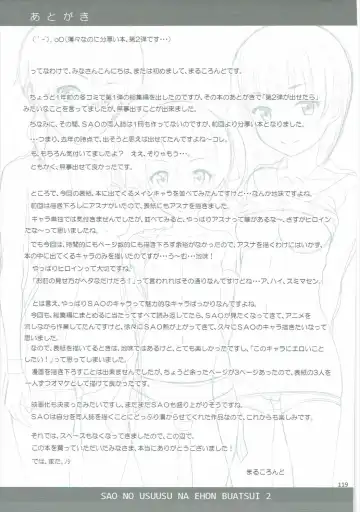 あとがき
(´-)．oO(薄々なのに分厚い本、第2弾です・・・)
ってなわけで、みなさんこんにちは、または初めまして、まるころんどです。
ちょうど1年前の冬コミで第1弾の総集編を出したのですが、その本のあとがきで「第2弾が出せたら」
みたいなことを言ってましたが、無事出すことが出来ました。
ちなみに、その間、SAOの同人誌は1冊も作ってないのですが、前回より分厚い本となりました。
・・・つまり、去年の時点で、出そうと思えば出せてたんですよね～コレ。
も、もちろん気付いてましたよ？　ええ、そりゃもう・・・。
ともかく、無事出せて良かったです。
ところで、今回の表紙、本に出てくるメインキャラを並べてみたんですけど・・・なんか地味ですよね。
前回は描き下ろしにアスナがいたので、表紙にもアスナを描きました。
キャラ単位では気付きませんでしたが、並べてみると、やっぱりアスナって華があるな～、さすがヒロイン
だな～って思いましたね。
でも今回は、時間的にもページ数的にも描き下ろす余裕がなかったので、アスナを描くわけにはいかず、
本の中に出てくるキャラのみを描いたのですが・・・う～む・・・地味！
やっぱりヒロインって大切ですね。
「お前の見せ方がヘタなだけだろ！」って言われればその通りなんですけどね・・・ア、ハイ、スミマセン。
とは言え、やっぱりSAOのキャラって魅力的なキャラばっかりなんですよね。
今回も、総集編にまとめるに当たって、すべて読み返してたら、SAOが見たくなってきて、アニメを
流しながら作業してたんですけど、徐々にSAO熱が上がってきて、久々にSAOのキャラ描きたいなって
思いました。
なので、表紙を描いてるときは、地味ではあるけど、とても楽しかったですし、「このキャラにエロいこと
したい！」って思ってしまいました。
漫画を描き下ろすことは出来ませんでしたが、ちょうど余ったページが3ページあったので、表紙の3人を
一人ずつオマケとして描けて良かったです。
映画化も決まったみたいですし、まだまだSAOも盛り上がりそうですね。
SAOは自分を同人誌を描くことにどっぷり漬からせてくれた作品なので、これからも楽しみです。
それでは、スペースもなくなってきましたので、この辺で。
この本を買っていただいたみなさま、本当にありがとうございました！
では、また。ﾉｼ
まるころんど
119
SAO NO USUUSU NA EHON BUATSUI 2